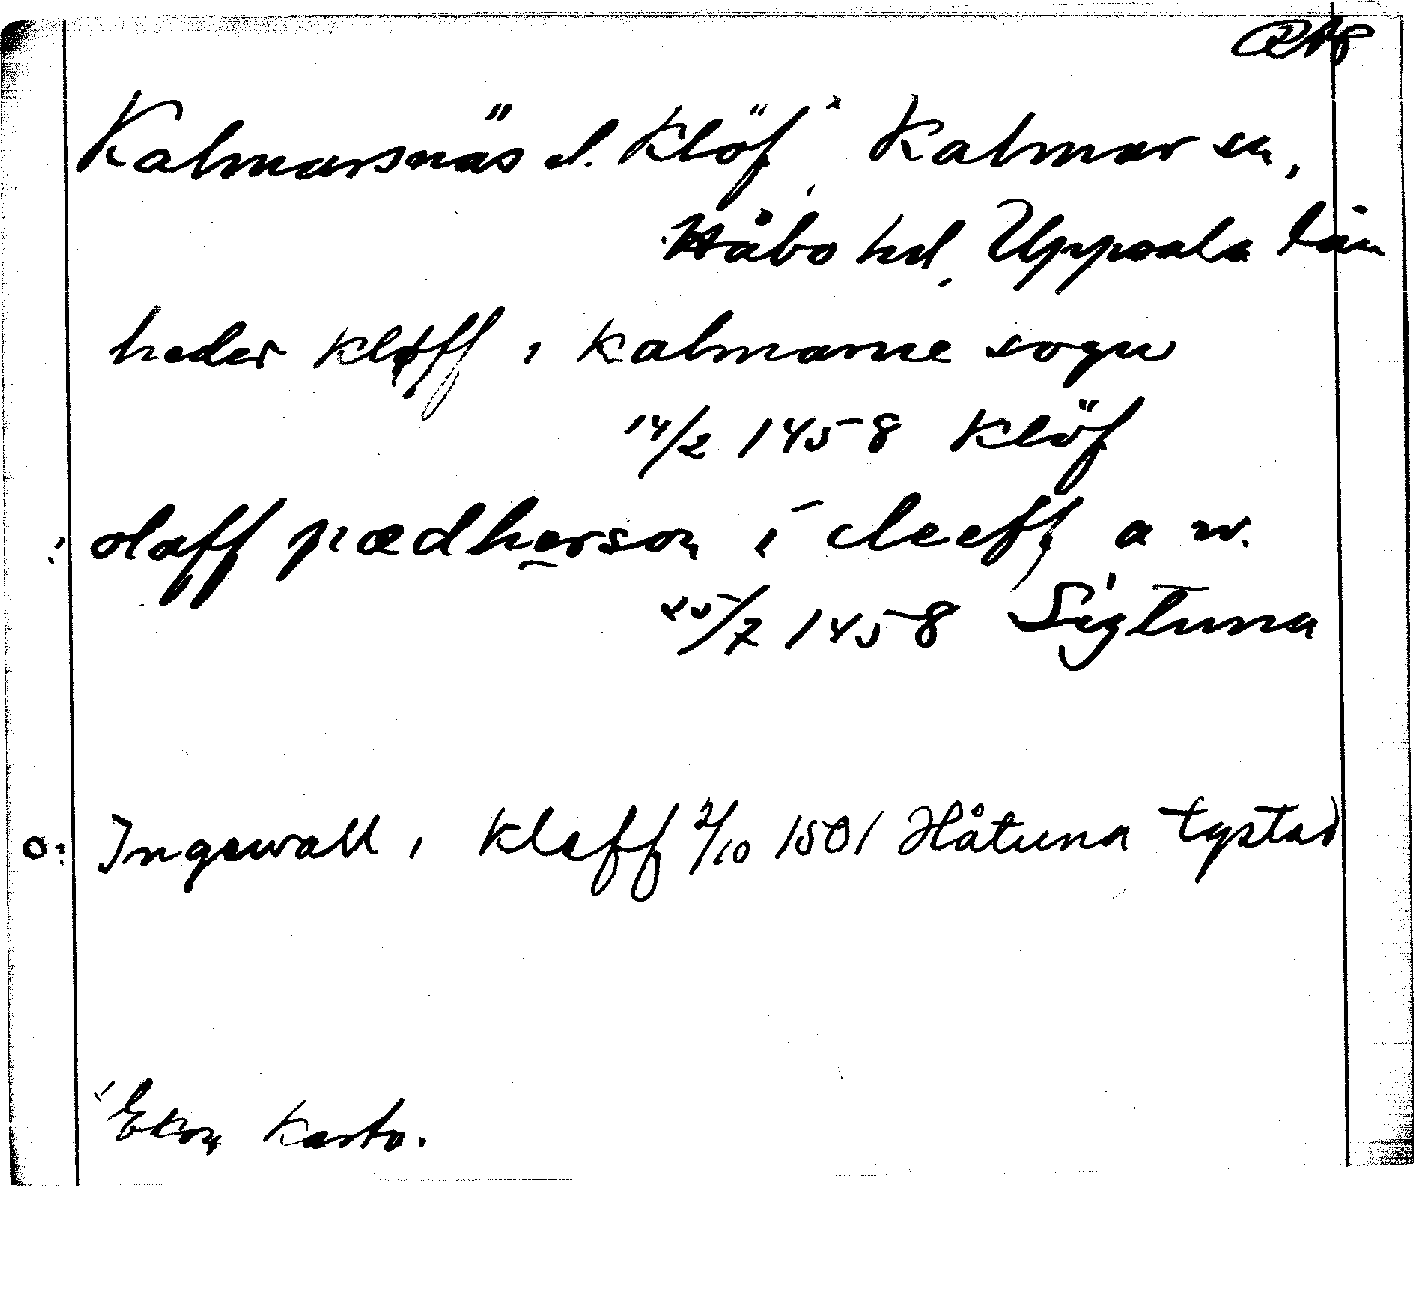 Kalmarsnäs el. Klöf ˣ Kalmar sn,
Håbo hd, Uppsala län
heder kløff i kalmarne sogn
14/2 1458 Klöf
: olaff pædherson i cleeff, a w.
25/7 1458 Sigtuna
o: Ingewall i kleff 2/10 1501 Håtuna tgstad
ˣ Ekon karta.